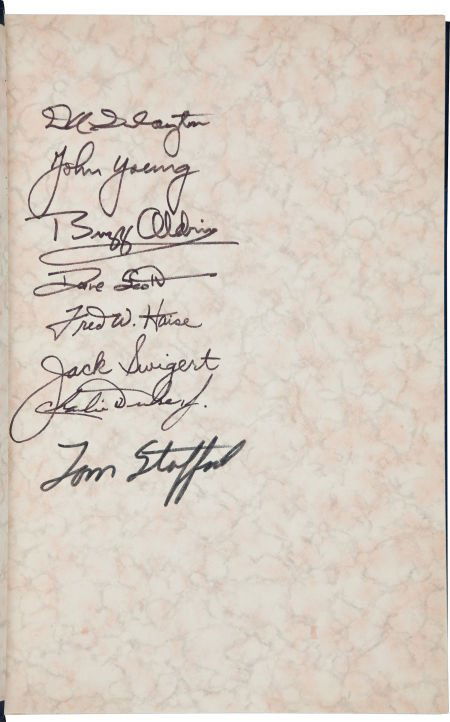 D K Slayton
John Young
Buzz Aldrin
Dave Scott
Fred W. Haise
Jack Swigert
Charlie Duke Jr.
Tom Stafford